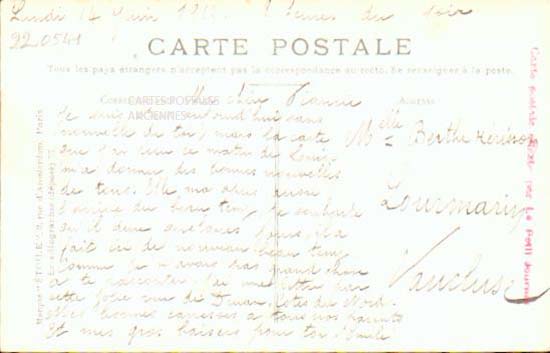 Lundi 14 Juin 8 heures du soir
220541
CARTE POSTALE
Tous les pays étrangers n'acceptent pas la correspondance au recto. Se renseigner à la poste.
CARTES POSTALES
ANCIENNES
Ma chère
Je suis aujourd'hui sans
nouvelle de toi, mais la carte
que j'ai reçu ce matin de
m'a donné des bonnes nouvelles
de tous. Elle m'a aussi
l'arrivée du beau temps. Je souhaite
qu'il dure quelques jours,
fait ici de nouveau beau temps
Comme je n'avais pas grand chose
à te raconter, j'ai
cette jolie vue de Dinan, Côtes du Nord.
Mes bonnes caresses à tous nos parents
Et mes gros baisers pour toi. Emile
Melle Berthe
Lourmarin
Vaucluse
Carte postale Le Petit Journal
Marque ÉTOILE, rue d'Amsterdam, Paris